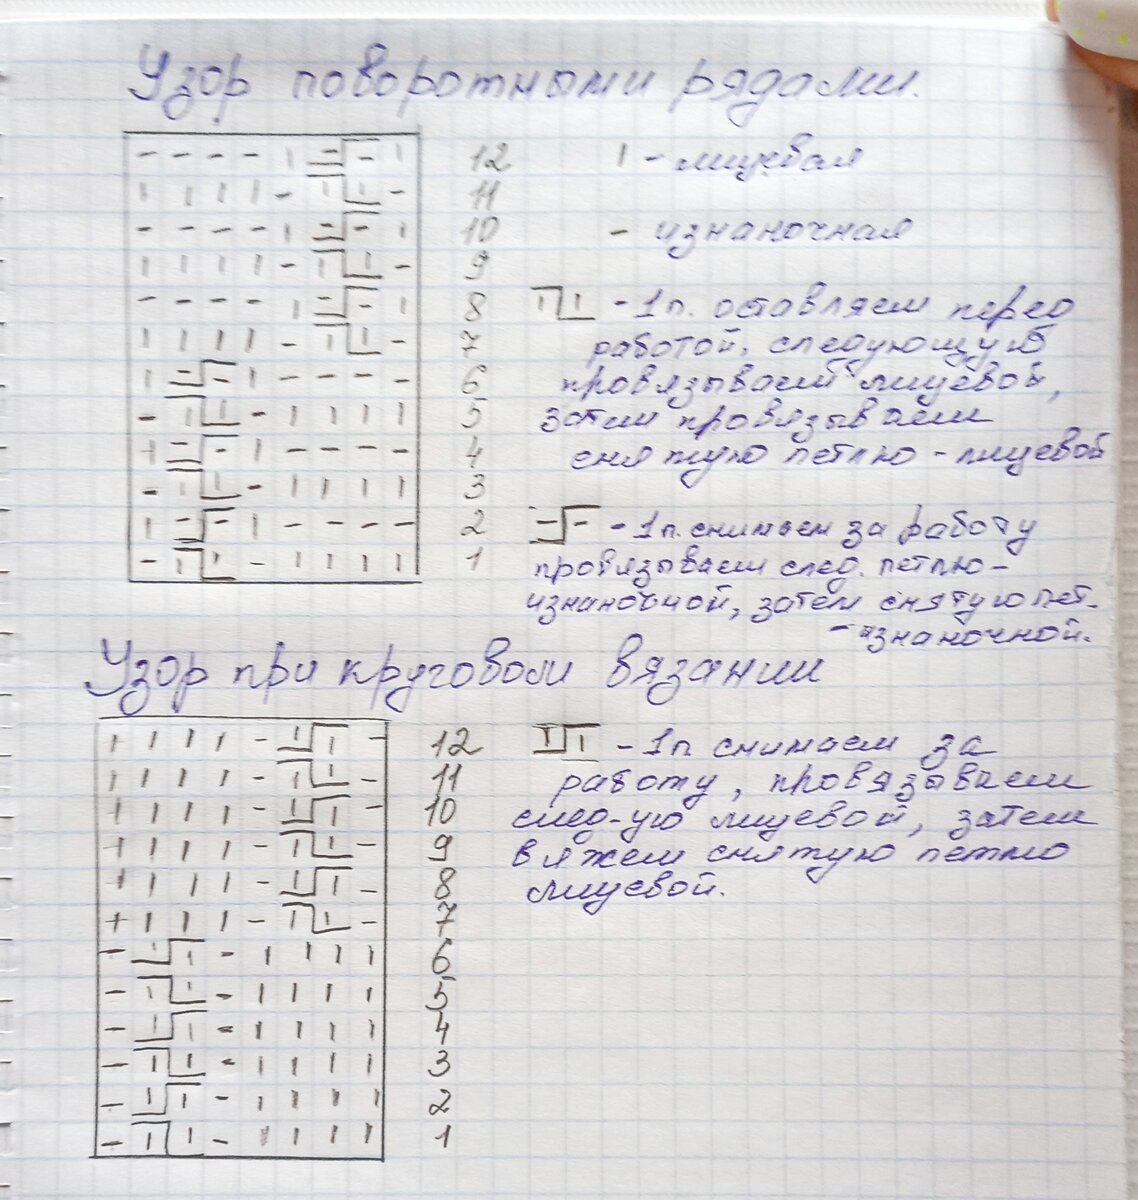 Узор поворотными рядами.
- - - - ı - - ı 12 ı - лицевая
ı ı ı ı - ı ı - 11
- - - - ı - - ı 10 - изнаночная
ı ı ı ı - ı ı - 9
- - - - ı - - ı 8 ı ı - 1п. оставляем перед
ı ı ı ı - ı ı - 7 работой, следующую
ı - - ı - - - - 6 провязываем лицевой,
- ı ı - ı ı ı ı 5 затем провязываем
ı - - ı - - - - 4 снятую петлю - лицевой
- ı ı - ı ı ı ı 3
ı - - ı - - - - 2 - - - 1п. снимаем за работу
- ı ı - ı ı ı ı 1 провязываем след. петлю-
изнаночной, затем снятую пет.
- изнаночной.
Узор при круговом вязании
ı ı ı ı - ı ı - 12 ı ı - 1п снимаем за
ı ı ı ı - ı ı - 11 работу, провязываем
ı ı ı ı - ı ı - 10 след-ую лицевой, затем
ı ı ı ı - ı ı - 9 вяжем снятую петлю
ı ı ı ı - ı ı - 8 лицевой.
ı ı ı ı - ı ı - 7
- ı ı - ı ı ı ı 6
- ı ı - ı ı ı ı 5
- ı ı - ı ı ı ı 4
- ı ı - ı ı ı ı 3
- ı ı - ı ı ı ı 2
- ı ı - ı ı ı ı 1